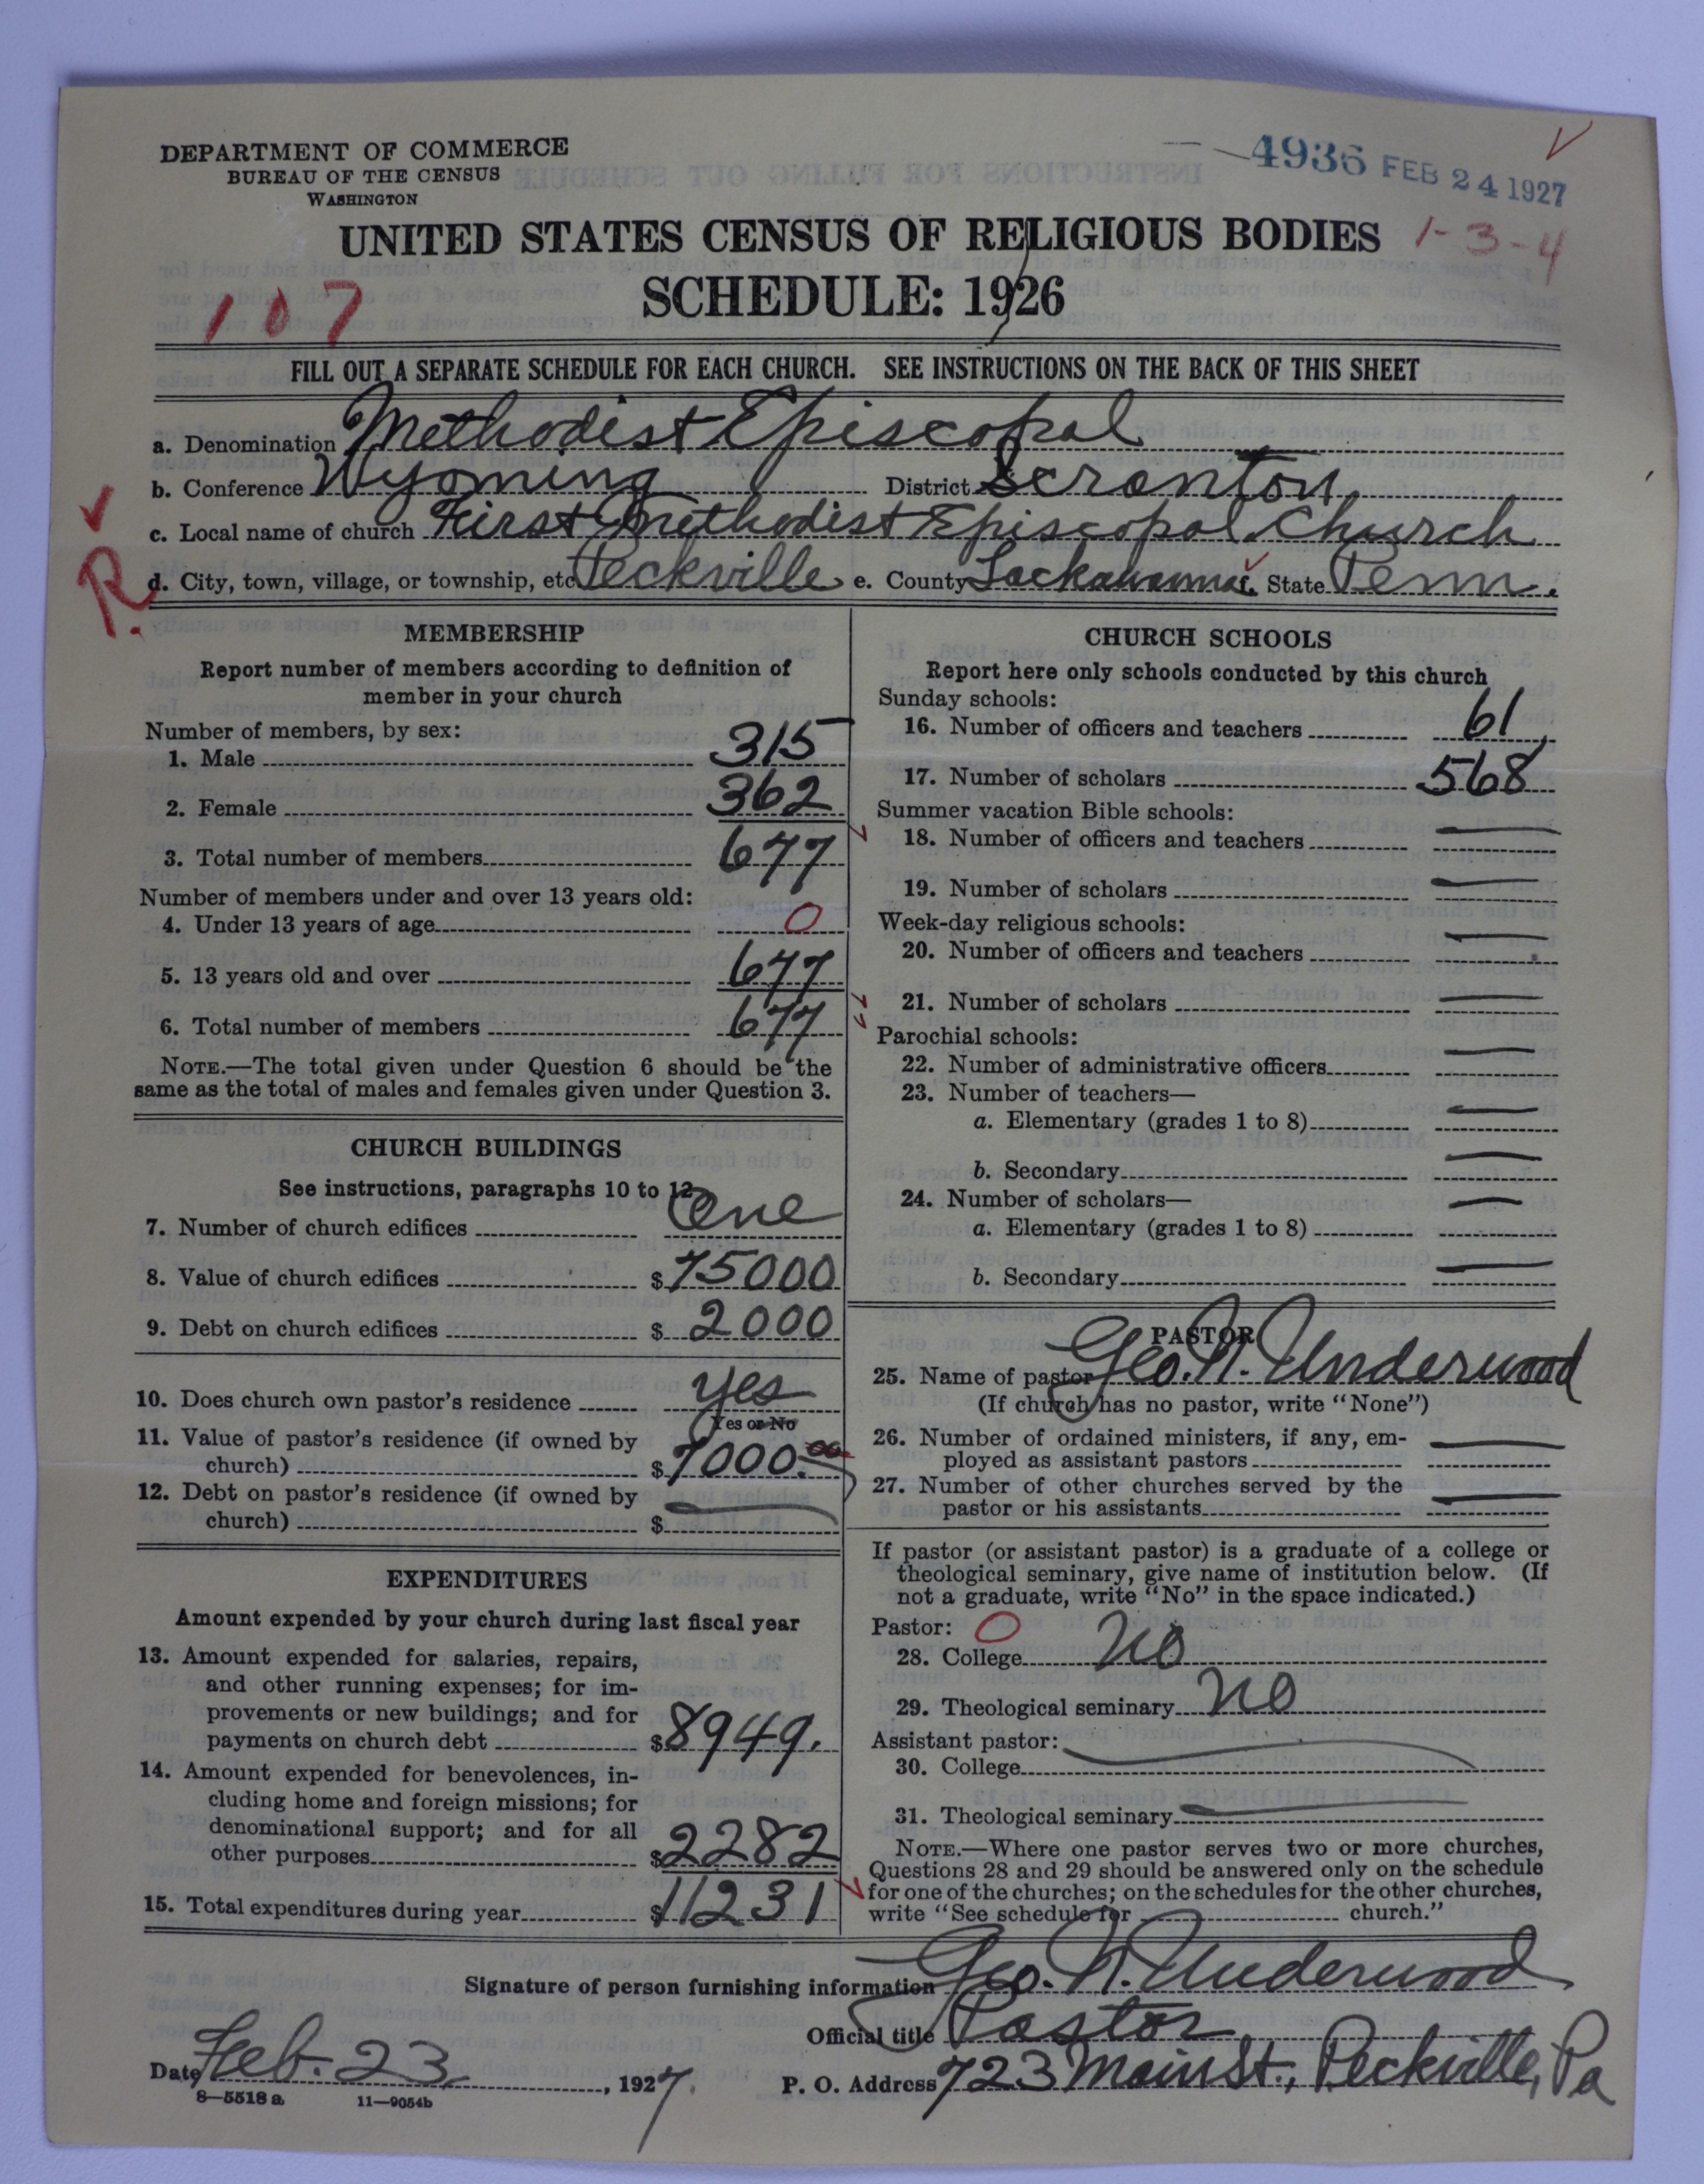 DEPARTMENT OF COMMERCE
BUREAU OF THE CENSUS
WASHINGTON
4936 FEB 24 1927
UNITED STATES CENSUS OF RELIGIOUS BODIES
1-3-4
SCHEDULE: 1926
107
FILL OUT A SEPARATE SCHEDULE FOR EACH CHURCH. SEE INSTRUCTIONS ON THE BACK OF THIS SHEET
a. Denomination Methodist Episcopal
b. Conference Wyoming District Scranton
c. Local name of church First Methodist Episcopal Church
R. d. City, town, village, or township, etc. Peckville e. County Lackawanna f. State Penn.
MEMBERSHIP
Report number of members according to definition of
member in your church
Number of members, by sex:
1. Male 315
2. Female 362
3. Total number of members 677
Number of members under and over 13 years old:
4. Under 13 years of age 0
5. 13 years old and over 677
6. Total number of members 677
NOTE.—The total given under Question 6 should be the
same as the total of males and females given under Question 3.
CHURCH BUILDINGS
See instructions, paragraphs 10 to 12
7. Number of church edifices One
8. Value of church edifices $75000
9. Debt on church edifices $2000
10. Does church own pastor's residence yes
Yes or No
11. Value of pastor's residence (if owned by
church) $7000.00
12. Debt on pastor's residence (if owned by
church) $ —
EXPENDITURES
Amount expended by your church during last fiscal year
13. Amount expended for salaries, repairs,
and other running expenses; for im-
provements or new buildings; and for
payments on church debt $8949.
14. Amount expended for benevolences, in-
cluding home and foreign missions; for
denominational support; and for all
other purposes $2282
15. Total expenditures during year $11231
CHURCH SCHOOLS
Report here only schools conducted by this church
Sunday schools:
16. Number of officers and teachers 61
17. Number of scholars 568
Summer vacation Bible schools:
18. Number of officers and teachers —
19. Number of scholars —
Week-day religious schools:
20. Number of officers and teachers —
21. Number of scholars —
Parochial schools:
22. Number of administrative officers —
23. Number of teachers—
a. Elementary (grades 1 to 8) —
b. Secondary —
24. Number of scholars—
a. Elementary (grades 1 to 8) —
b. Secondary —
PASTOR
25. Name of pastor Geo. N. Underwood
(If church has no pastor, write "None")
26. Number of ordained ministers, if any, em-
ployed as assistant pastors —
27. Number of other churches served by the
pastor or his assistants —
If pastor (or assistant pastor) is a graduate of a college or
theological seminary, give name of institution below. (If
not a graduate, write "No" in the space indicated.)
Pastor: 0
28. College no
29. Theological seminary no
Assistant pastor:
30. College —
31. Theological seminary —
NOTE.—Where one pastor serves two or more churches,
Questions 28 and 29 should be answered only on the schedule
for one of the churches; on the schedules for the other churches,
write "See schedule for church."
Signature of person furnishing information Geo. N. Underwood
Official title Pastor
Date Feb. 23, 1927. P. O. Address 723 Main St., Peckville, Pa
8—5518 a 11—9054b